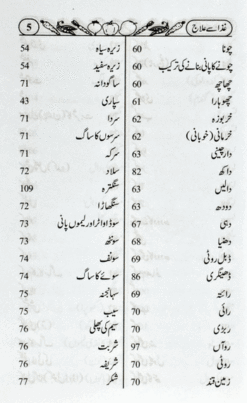 غذا سے علاج
5
چونا 60
چونے کا پانی بنانے کی ترکیب 60
چھاچھ 60
چھوہارا 61
خربوزہ 62
خرمانی (خوبانی) 62
دارچینی 63
داکھ 82
دالیں 63
دودھ 63
دہی 67
دھنیا 68
ڈبل روٹی 69
ڈھینگری 86
رائتہ 69
رائی 70
ربڑی 70
رواں 97
روٹی 70
زمین قند 70
زیرہ سیاہ 54
زیرہ سفید 54
ساگودانہ 71
سپاری 43
سردا 71
سرسوں کا ساگ 71
سرکہ 71
سلاد 72
سنگترہ 109
سنگھاڑا 72
سوڈا واٹر اور لیموں پانی 73
سونٹھ 73
سونف 74
سوئے کا ساگ 74
سہانجنہ 75
سیب 75
سیم کی پھلی 76
شربت 76
شریفہ 76
شکر 77